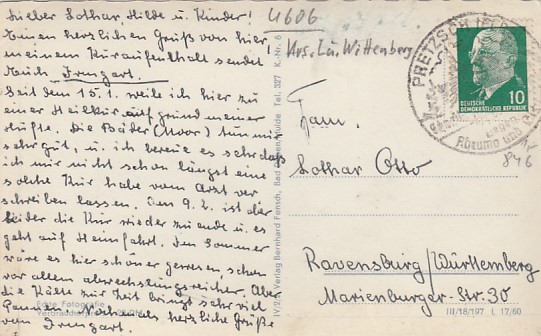 Lieber Lothar, Hilde u. Kinder!
Einen herzlichen Gruß von hier
meinem Kuraufenthalt sendet
Euch Irmgart.
Seit dem 15.1. weile ich hier zu
einer Heilkur auf grund meiner
Hüfte. Die Bäder (Moor) tun mir
sehr gut, u. ich bereue es sehr daß
ich mir nicht schon längst eine
solche Kur habe vom Arzt ver
schreiben lassen. Am 9.2. ist der
leider die Kur wieder zu ende u. es
geht auf Heimfahrt. Im Sommer
wäre es hier schöner gewesen, schon
vor allem abwechslungsreicher. Aber
die Kälte zur Zeit bringt sehr viel
Nochmals herzliche Grüße
von Irmgart.
Echte Fotografie
IV/2 Verlag Bernhard Fensch, Bad Tel. 327 K.-Nr. 6
4606
Krs. Lu. Wittenberg
PRETZSCH (ELBE)
DEUTSCHE
DEMOKRATISCHE REPUBLIK
10
Rheuma und
846
Fam.
Lothar Otto
Ravensburg/Württemberg
Marienburger-Str. 30
III/18/197 L 17/60